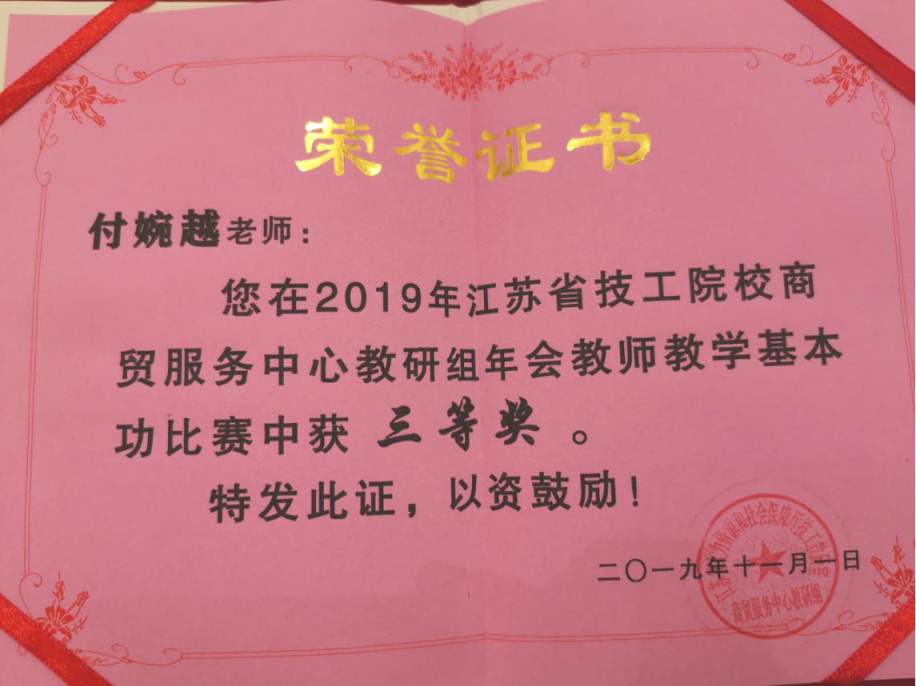 荣誉证书
付婉越老师：
您在2019年江苏省技工院校商
贸服务中心教研组年会教师教学基本
功比赛中获 三等奖 。
特发此证，以资鼓励！
二〇一九年十一月一日
商贸服务中心教研组